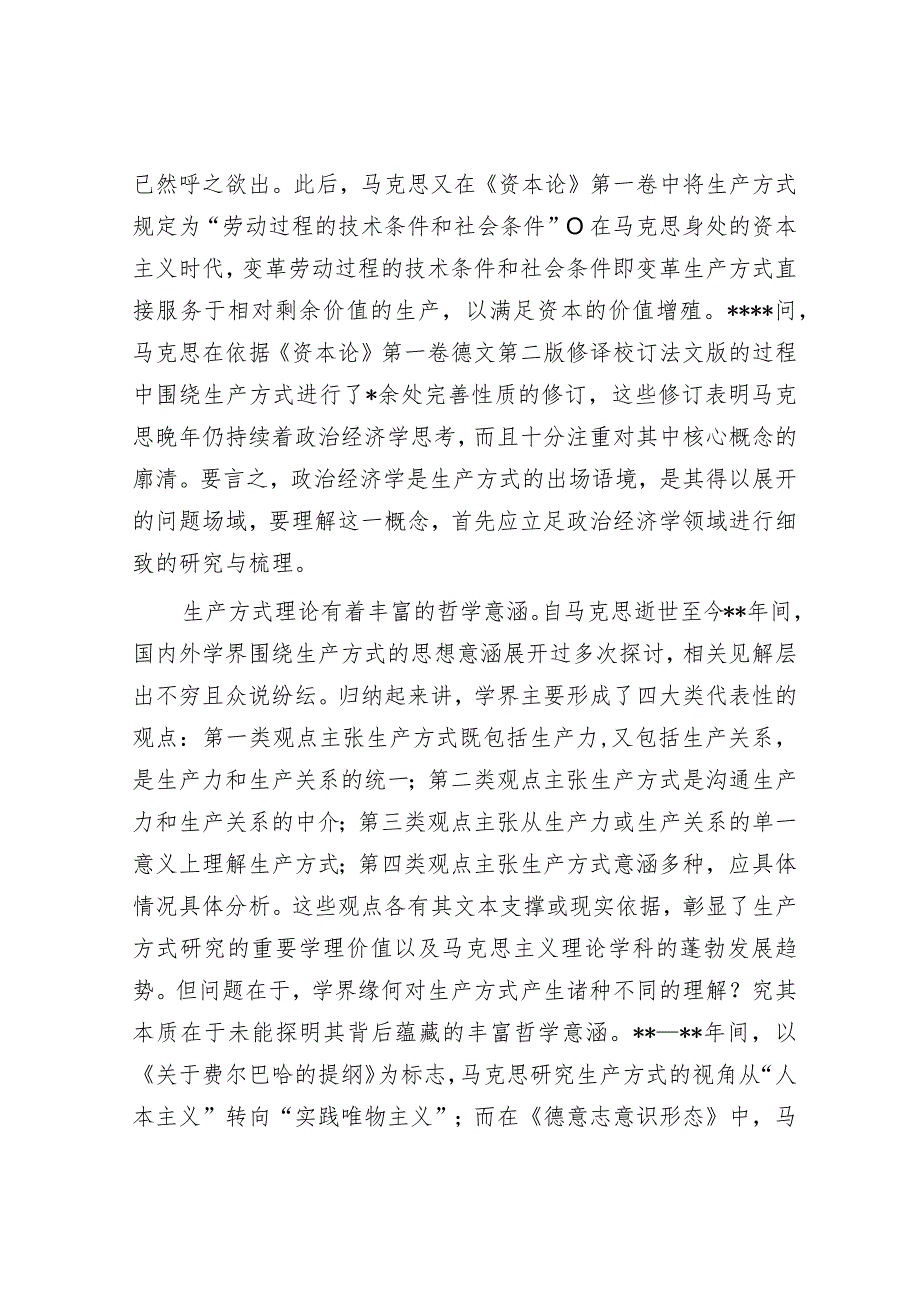 已然呼之欲出。此后，马克思又在《资本论》第一卷中将生产方式
规定为“劳动过程的技术条件和社会条件”O在马克思身处的资本
主义时代，变革劳动过程的技术条件和社会条件即变革生产方式直
接服务于相对剩余价值的生产，以满足资本的价值增殖。****问，
马克思在依据《资本论》第一卷德文第二版修译校订法文版的过程
中围绕生产方式进行了*余处完善性质的修订，这些修订表明马克
思晚年仍持续着政治经济学思考，而且十分注重对其中核心概念的
廓清。要言之，政治经济学是生产方式的出场语境，是其得以展开
的问题场域，要理解这一概念，首先应立足政治经济学领域进行细
致的研究与梳理。
生产方式理论有着丰富的哲学意涵。自马克思逝世至今**年间，
国内外学界围绕生产方式的思想意涵展开过多次探讨，相关见解层
出不穷且众说纷纭。归纳起来讲，学界主要形成了四大类代表性的
观点：第一类观点主张生产方式既包括生产力,又包括生产关系，
是生产力和生产关系的统一；第二类观点主张生产方式是沟通生产
力和生产关系的中介；第三类观点主张从生产力或生产关系的单一
意义上理解生产方式；第四类观点主张生产方式意涵多种，应具体
情况具体分析。这些观点各有其文本支撑或现实依据，彰显了生产
方式研究的重要学理价值以及马克思主义理论学科的蓬勃发展趋
势。但问题在于，学界缘何对生产方式产生诸种不同的理解？究其
本质在于未能探明其背后蕴藏的丰富哲学意涵。**—**年间，以
《关于费尔巴哈的提纲》为标志，马克思研究生产方式的视角从“人
本主义”转向“实践唯物主义”；而在《德意志意识形态》中，马